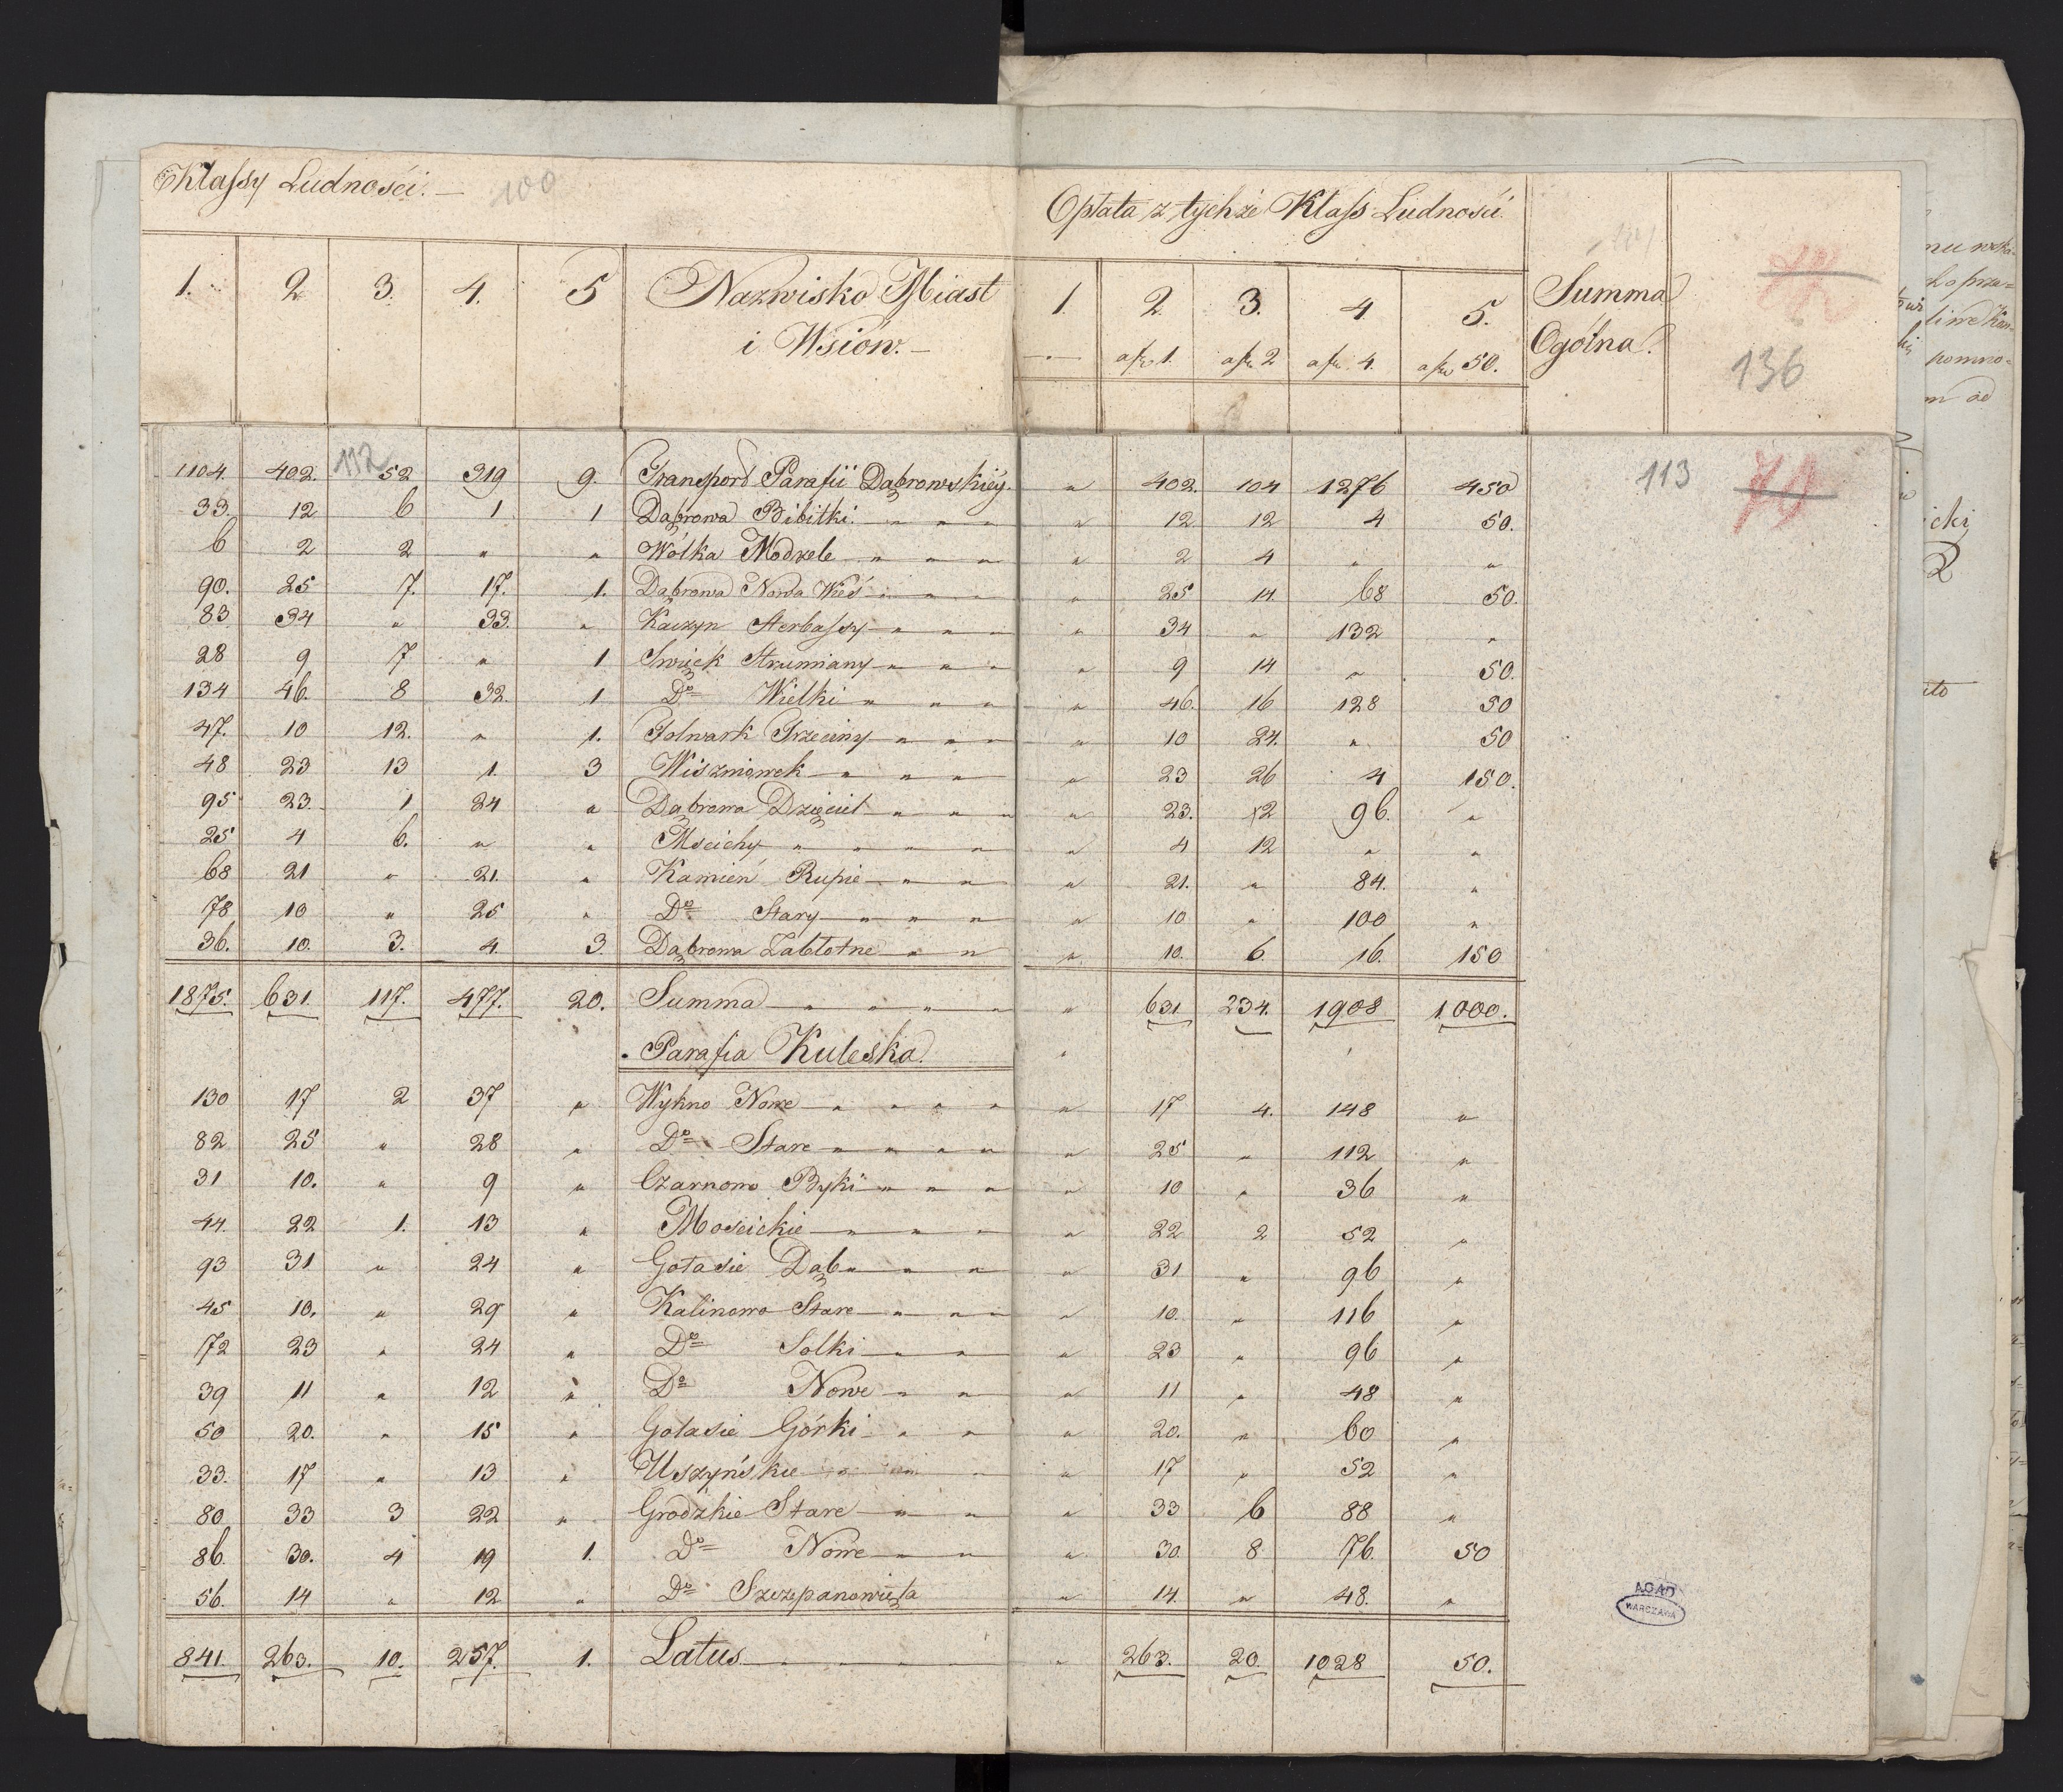 Klassy Ludnośći. — 100
Opłata z tychże Klass Ludnośći
1. 2 3. 4. 5 Nazwisko Miast i Wsiów. — 1. 2. 3. 4. 5. Summa Ogólna.
a fl. 1. a fl. 2 a fl. 4. a fl. 50.
136
112 113 71
1104. 402. 52 319 9. Transport Parafii Dąbrowskiéy. " 402. 104 1276 450
33. 12 6 1 1 Dąbrowa Bibitki. " " " " 12 12 4 50.
6 2 2 " " Wólka Modzele " " " " 2 4 " "
90. 25 7. 17. 1. Dąbrowa Nowa Wieś " " " " 25 14. 68 50.
83 34 " 33. " Kaczyn Herbassy " " " " 34 " 132 "
28 9 7 " 1 Swięck Strumiany " " " " 9 14 " 50.
134 46. 8 32. 1 Do Wielki " " " " 46. 16 128 50
47. 10 12. " 1. Folwark Trzeciny " " " " 10 24. " 50
48 23 13 1. 3 Wiszniowek " " " " 23 26 4 150.
95 23. 1 24 " Dąbrowa Dzięciel " " " " 23. 2 96. "
25 4 6. " " Mscichy " " " " " 4 12 " "
68 21 " 21. " Kamień Rupie " " " 21. " 84. "
78 10 " 25 " Do Stary " " " " 10 " 100 "
36. 10. 3. 4. 3. Dąbrowa Zabłotne " " " 10. 6. 16. 150
1875. 631. 117. 477. 20. Summa " " " " " 631 234. 1908 1000.
Parafia Kuleska.
130 17 2 37 " Wykno Nowe " " " " " 17 4. 148 "
82 25 " 28 " Do Stare " " " " " 25 " 112 "
31 10. " 9 " Czarnowo Byki " " " " 10 " 36 "
44. 22 1. 13 " Moscickie " " " " 22 2 52 "
93 31 " 24 " Gołasie Dąb " " " " 31 " 96 "
45 10. " 29 " Kalinowo Stare " " " " 10. " 116 "
72 23 " 24 " Do Solki " " " 23 " 96 "
39 11 " 12 " Do Nowe " " " 11 " 48 "
50 20. " 15 " Gołasie Górki " " " 20. " 60 "
33. 17 " 13 " Uszyńskie " " " " 17 " 52 "
80 33 3 22 " Grodzkie Stare " " " 33 6 88 "
86. 30. 4 19 1. Do Nowe " " " 30. 8 76. 50
56. 14 " 12 " Do Szczepanowięta " 14. " 48. "
841. 263. 10. 257. 1. Latus " 263. 20. 1028 50.
AGAD
WARSZAWA